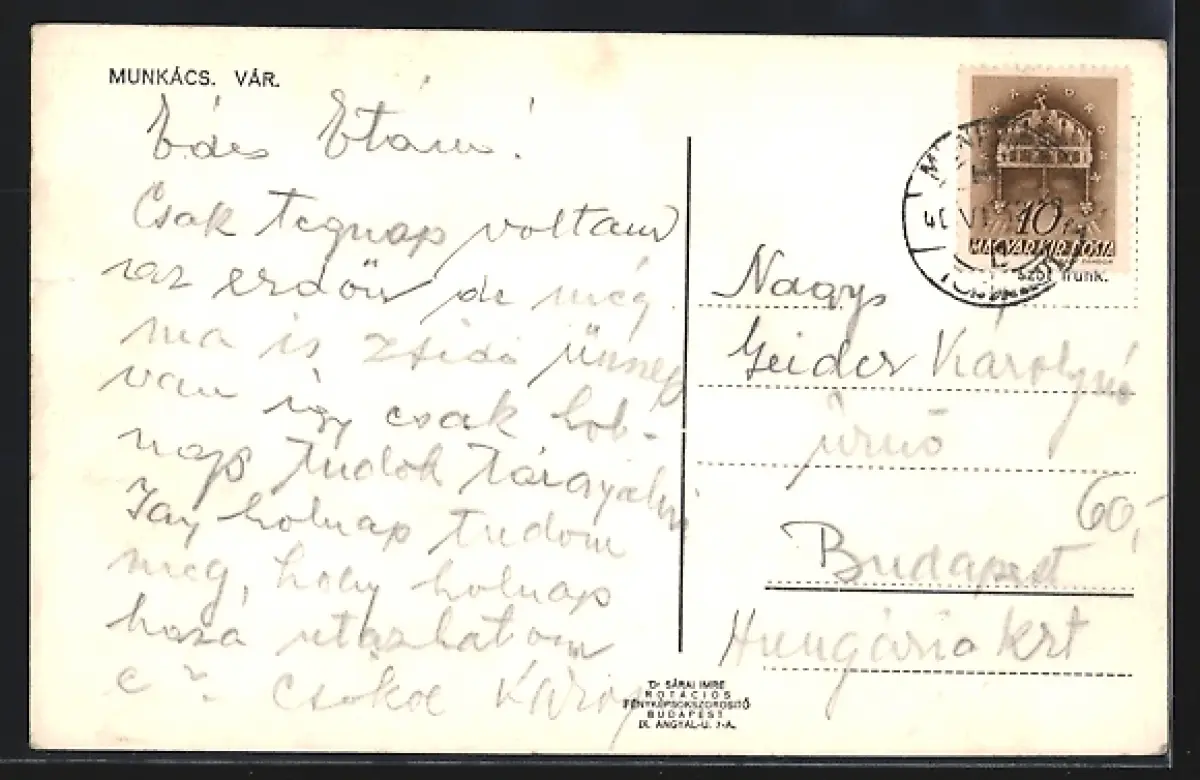 MUNKÁCS. VÁR.
Édes Etám!
Csak tegnap voltam
az erdőn de még
ma is zsidó ünnep
van így csak hol-
nap tudok tárgyalni
Igy holnap tudom
meg, hogy holnap
haza utazhatom
e?. Csókol Károly
MAGYAR KIR. POSTA
10
Nagys
Geider Károlyné
úrnő
60,-
Budapest
Hungária krt
Dr SÁRAI IMRE
ROTÁCIÓS
FÉNYKÉPSOKSZOROSÍTÓ
BUDAPEST
IX. ANGYAL-U. 7-A.